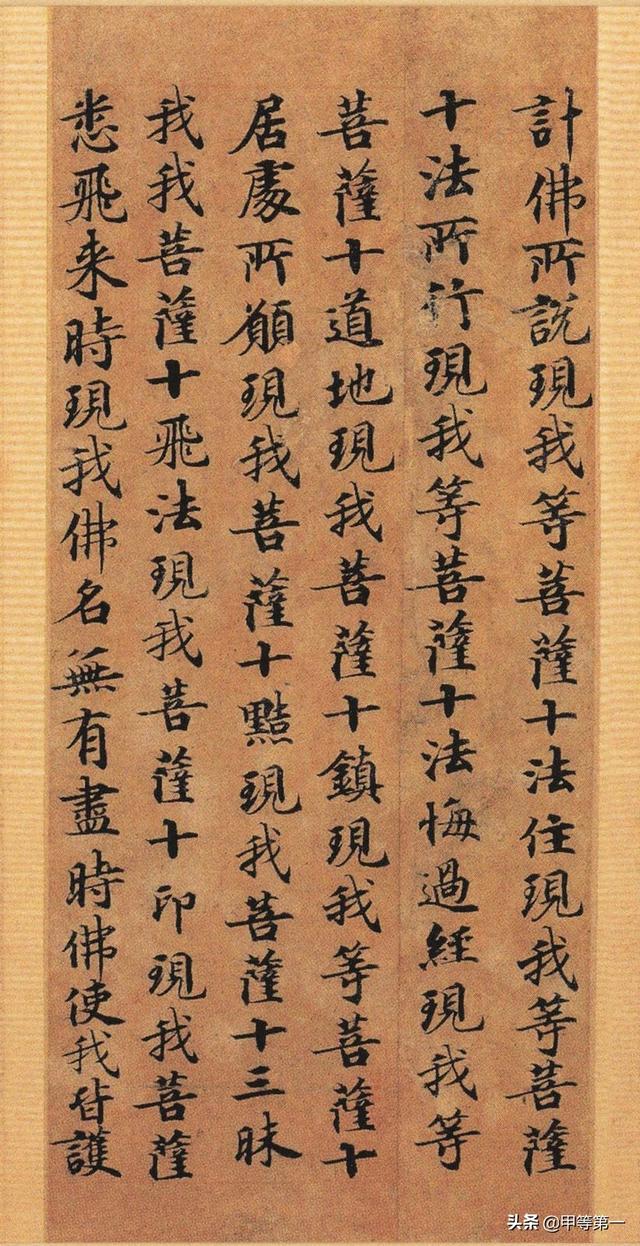 計佛所說現我等菩薩十法住現我等菩薩
十法所行現我等菩薩十法悔過經現我等
菩薩十道地現我菩薩十鎮現我等菩薩十
居處所願現我菩薩十黠現我菩薩十三昧
我我菩薩十飛法現我菩薩十印現我菩薩
悉飛来時現我佛名無有盡時佛使我皆護
头条 @甲等第一